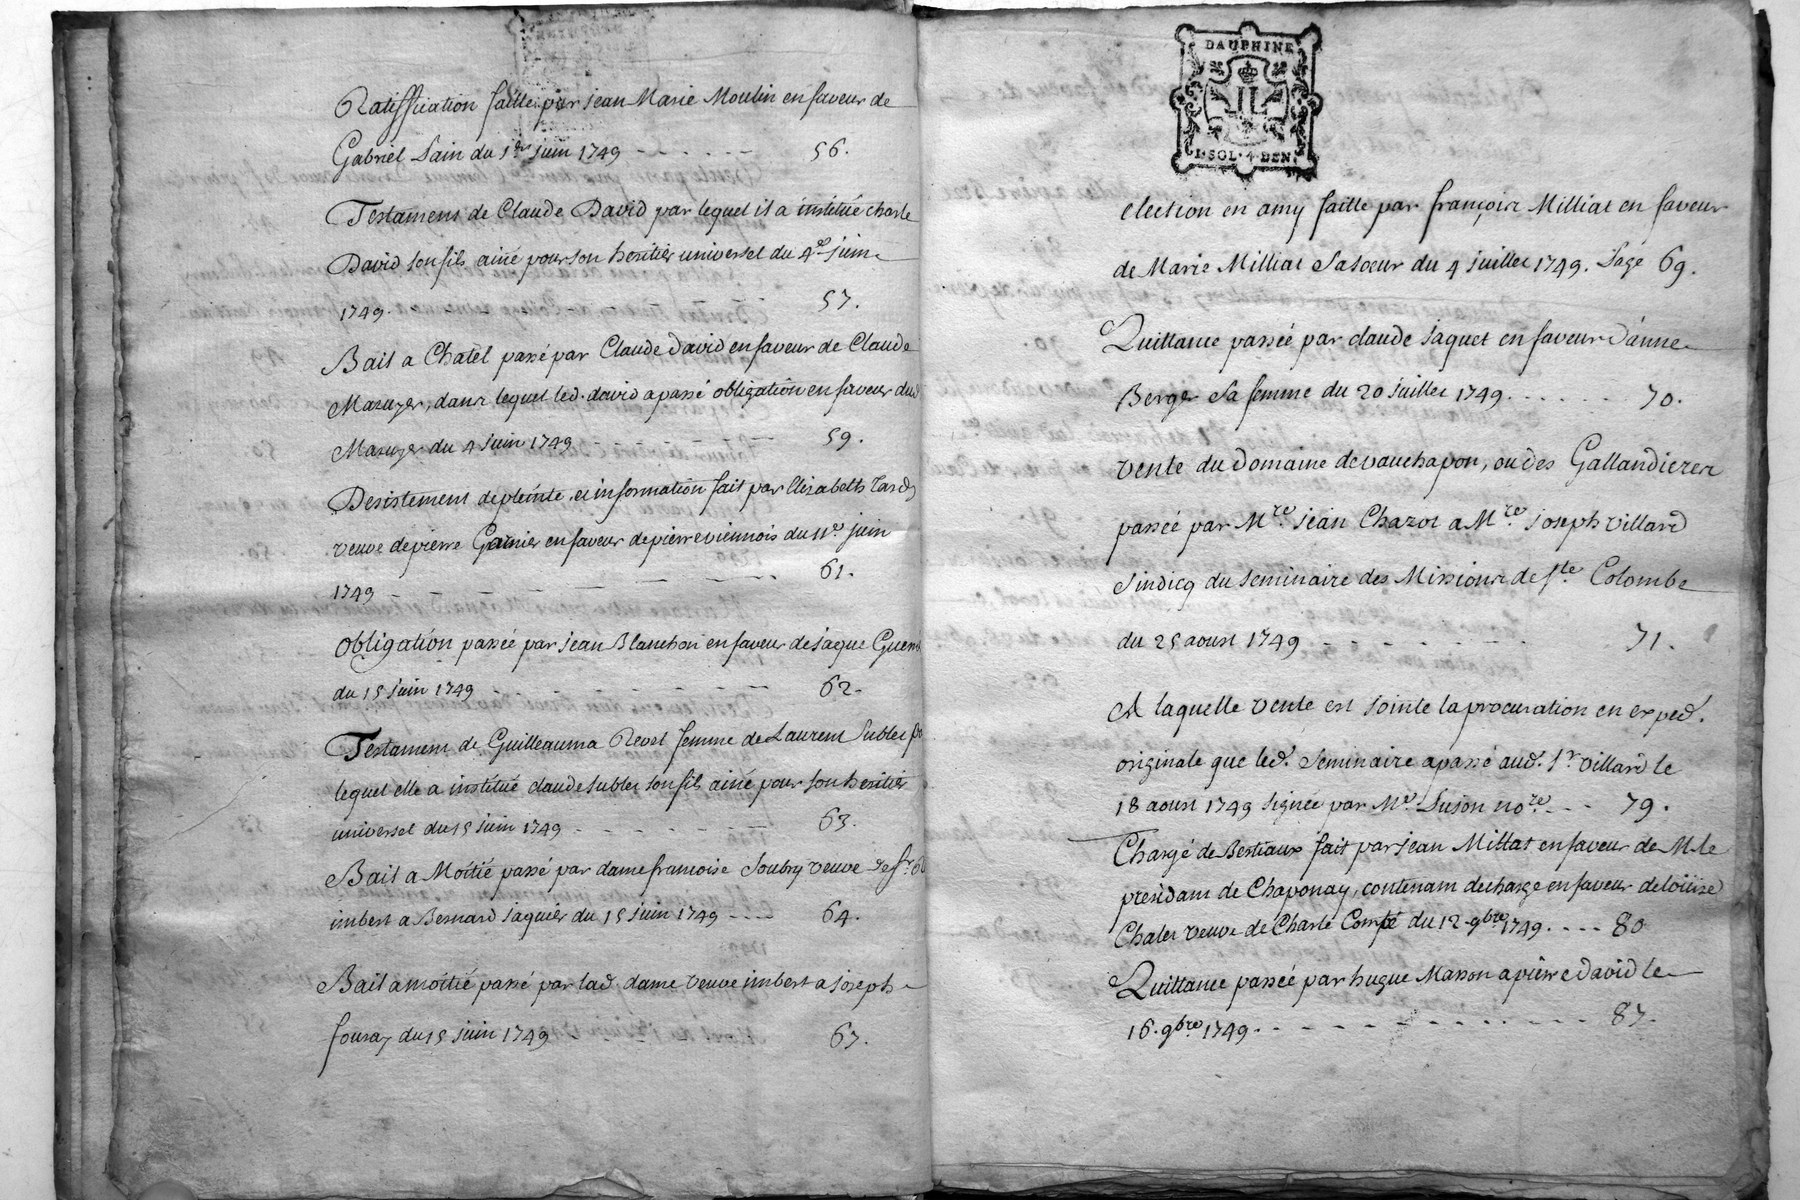 Ratiffication faitte par jean Marie Moulin en faveur de
Gabriel Sain du 1er juin 1749 - - - - - - 56.
Testament de Claude David par lequel il a institué charle
David son fils ainé pour son heritier universel du 4e juin
1749. 57.
Bail a Chatel passé par Claude david en faveur de Claude
Mazuyer, dans lequel led. david a passé obligation en faveur dud
Mazuyer du 4 juin 1749 - - - - - - 59.
Desistement de pleinte et information fait par Elizabeth
veuve de pierre Garnier en faveur de pierre viennois du 11e juin
1749 - - - - - - - 61.
obligation passée par jean Blanchon en faveur de jaque
du 15 juin 1749 - - - - - - - 62.
Testament de Guilleauma Revol femme de Laurent Sublet
lequel elle a institué claude sublet son fils ainé pour son heritier
universel du 15 juin 1749 - - - - - - 63.
Bail a Moitié passé par dame francoise Soubry veuve de sr.
imbert a Bernard jaquier du 15 juin 1749 - - - - 64.
Bail a moitié passé par lad. dame veuve imbert a joseph
fouray du 15 juin 1749 67.
DAUPHINE
1. SOL. 4 DEN.
election en amy faitte par françoise Milliat en faveur
de Marie Milliat sa soeur du 4 juillet 1749. page 69.
Quittance passée par claude jaquet en faveur d'anne
Berger sa femme du 20 juillet 1749. - - - - - - 70.
vente du domaine de vauchapon, ou des Gallandieres
passée par Mre. jean Chazot a Mre. joseph villard
sindicq du seminaire des Missions de ste. Colombe
du 25 aoust 1749 - - - - - - - 71.
A laquelle vente est jointe la procuration en exped.
originale que led. Seminaire a passé aud. sr. villard le
18 aoust 1749 signée par Me. Luson nore. - - 79.
Chargé de Bestiaux fait par jean Millat en faveur de M. le
president de Chaponay, contenant decharge en faveur de loüise
Chalet veuve de Charle Compte du 12. 9bre 1749. - - - - 80
Quittance passée par hugue Masson a pierre david le
16. 9bre 1749. - - - - - - - - - - - - 87.